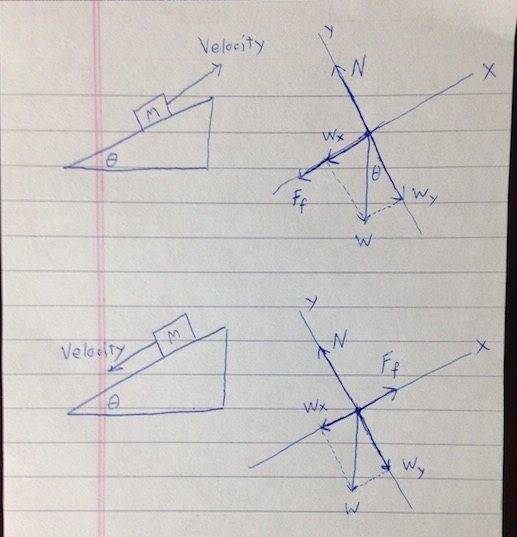 Velocity
M
θ
y
N
x
Wx
θ
Ff
Wy
W
Velocity
M
θ
y
N
x
Ff
Wx
Wy
W